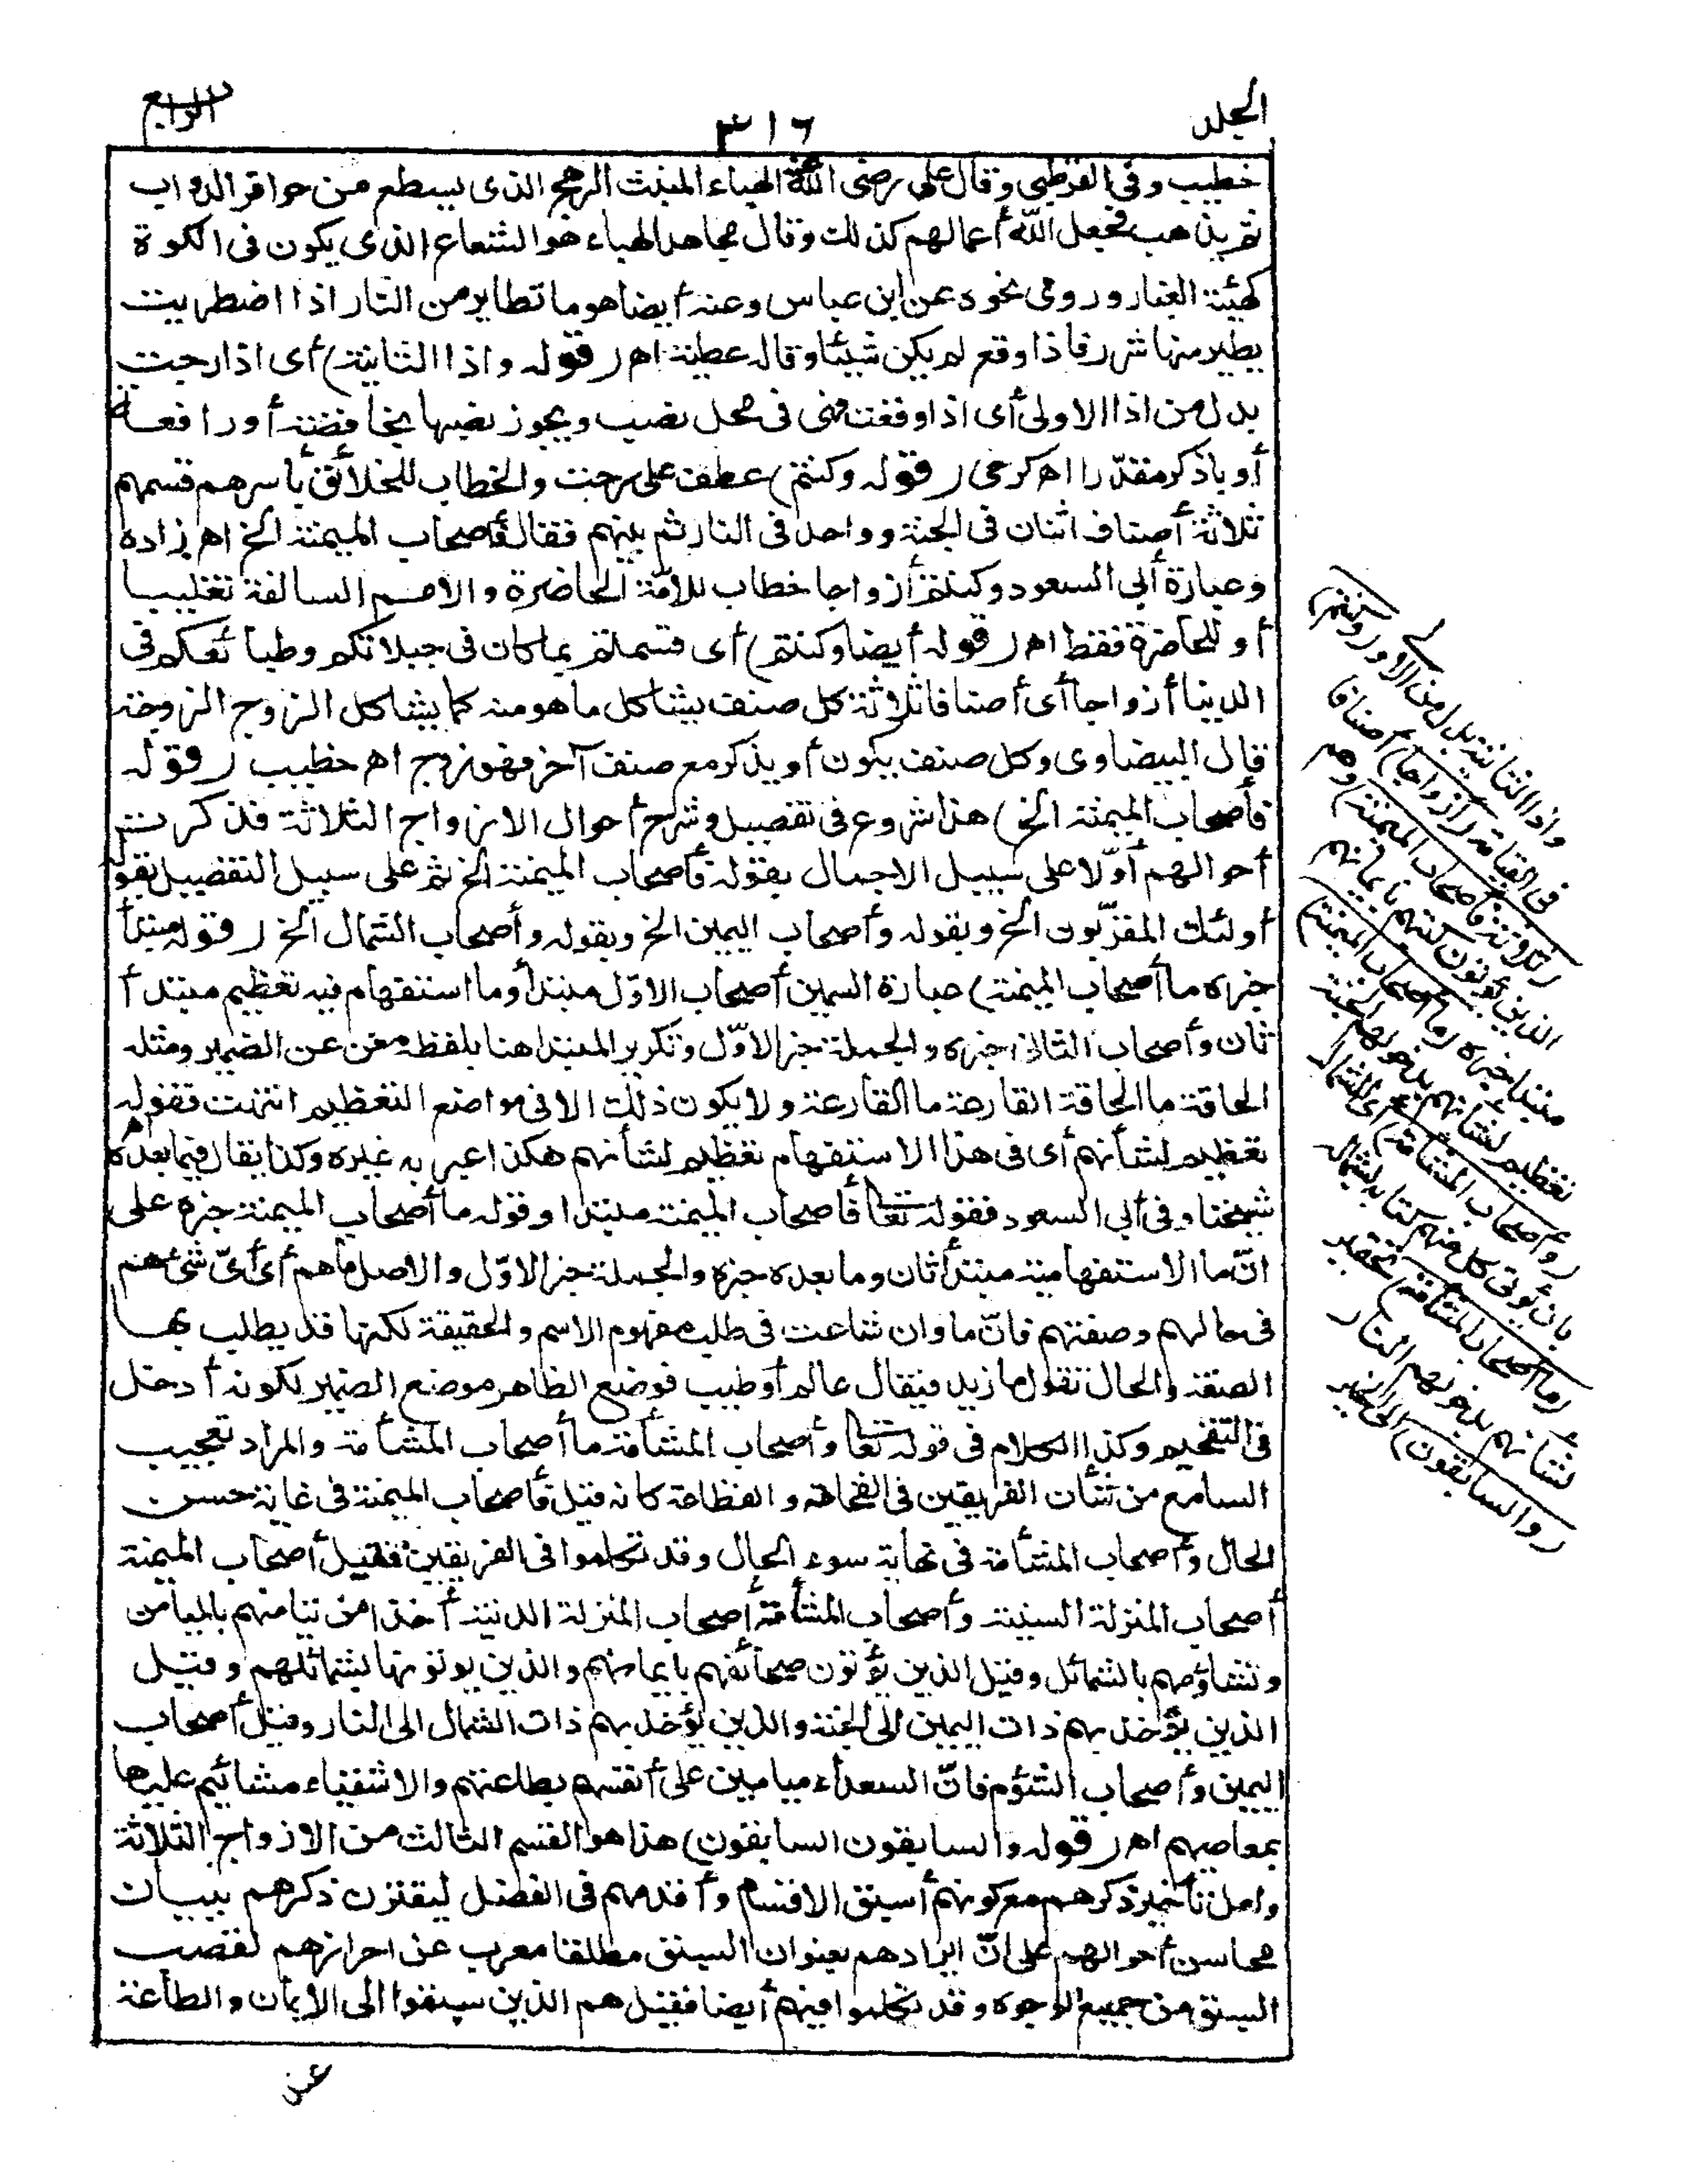 الجلد
٣١٦
الرابع
خطيب وفى القرطبى وقال على رضى الله عنه الهباء المنبث الرهج الذى يسطع من حوافر الدواب
ثم يذهب فجعل الله أعمالهم كذلك وقال مجاهد الهباء هو الشعاع الذى يكون فى الكوة
كهيئة الغبار وروى نحوه عن ابن عباس وعنه أيضا هو ما تطاير من النار اذا اضطربت
يطير منها شرر فاذا وقع لم يكن شيئا وقاله عطية اهـ (قوله واذا الثانية) أى اذا رجت
بدل من اذا الاولى أى اذا وقعت فهى فى محل نصب ويجوز نصبها بخافضة أو رافعة
أو باذكر مقدّرا اهـ كرخى (قوله وكنتم) عطف على رجت والخطاب للخلائق بأسرهم قسمهم
ثلاثة أصناف اثنان فى الجنة وواحد فى النار ثم بينهم فقال فأصحاب الميمنة الخ اهـ زاده
وعبارة أبى السعود وكنتم أزواجا خطاب للامّة الحاضرة والامم السالفة تغليبا
أو للحاضرة فقط اهـ (قوله أيضا وكنتم) أى قسمتم بما كان فى جبلاتكم وطبائعكم فى
الدنيا أزواجا أى أصنافا ثلاثة كل صنف يشاكل ما هو منه كما يشاكل الزوج الزوجة
قال البيضاوى وكل صنف يكون أو يذكر مع صنف آخر فهو زوج اهـ خطيب (قوله
فأصحاب الميمنة الخ) هذا شروع فى تفصيل وشرح أحوال الازواج الثلاثة فذكرت
أحوالهم أوّلا على سبيل الاجمال بقوله فأصحاب الميمنة الخ ثم على سبيل التفصيل بقوله
أولئك المقرّبون الخ وبقوله وأصحاب اليمين الخ وبقوله وأصحاب الشمال الخ (قوله مبتدأ
خبره ما أصحاب الميمنة) عبارة السمين أصحاب الاوّل مبتدأ وما استفهام فيه تعظيم مبتدأ
ثان وأصحاب الثانى خبره والجملة خبر الاوّل وتكرير المبتدا هنا بلفظه مغن عن الضمير ومثله
الحاقة ما الحاقة القارعة ما القارعة ولا يكون ذلك الا فى مواضع التعظيم انتهت فقوله
تعظيم لشأنهم أى فى هذا الاستفهام تعظيم لشأنهم هكذا عبر به غيره وكذا يقال فيما بعده اهـ
شيخنا وفى أبى السعود فقوله تعالى فأصحاب الميمنة مبتدا وقوله ما أصحاب الميمنة خبره على
انّ ما الاستفهامية مبتدأ ثان وما بعده خبره والجملة خبر الاوّل والاصل ما هم أى أىّ شئ هم
فى حالهم وصفتهم فانّ ما وان شاعت فى طلب مفهوم الاسم والحقيقة لكنها قد يطلب بها
الصفة والحال تقول ما زيد فيقال عالم أو طبيب فوضع الظاهر موضع الضمير لكونه أدخل
فى التفخيم وكذا الكلام فى قوله تعالى وأصحاب المشأمة ما أصحاب المشأمة والمراد تعجيب
السامع من شأن الفريقين فى الفخامة والفظاعة كانه قيل فأصحاب الميمنة فى غاية حسن
الحال وأصحاب المشأمة فى نهاية سوء الحال وقد تكلموا فى الفريقين فقيل أصحاب الميمنة
أصحاب المنزلة السنية وأصحاب المشأمة أصحاب المنزلة الدنية أخذا من تيامنهم بالميامن
وتشاؤمهم بالشمائل وقيل الذين يؤتون صحائفهم بايمانهم والذين يؤتونها بشمائلهم وقيل
الذين يؤخذ بهم ذات اليمين الى الجنة والذين يؤخذ بهم ذات الشمال الى النار وقيل أصحاب
اليمين وأصحاب الشؤم فانّ السعداء ميامين على أنفسهم بطاعتهم والاشقياء مشائيم عليها
بمعاصيهم اهـ (قوله والسابقون السابقون) هذا هو القسم الثالث من الازواج الثلاثة
ولعل تأخير ذكرهم مع كونهم أسبق الاقسام وأقدمهم فى الفضل ليقترن ذكرهم ببيان
محاسن أحوالهم على انّ ايرادهم بعنوان السبق مطلقا معرب عن احرازهم لقصب
السبق من جميع الوجوه وقد تكلموا فيهم أيضا فقيل هم الذين سبقوا الى الايمان والطاعة
عن
واذا الثانية بدل من الاولى (وكنتم)
فى القيامة (أزواجا) أصنافا
(ثلاثة فأصحاب الميمنة) وهم
الذين يؤتون كتبهم بايمانهم
مبتدا خبره (ما أصحاب الميمنة)
تعظيم لشأنهم بدخولهم الجنة
(وأصحاب المشأمة) أى الشمال
بأن يؤتى كل منهم كتابه بشماله
(ما أصحاب المشأمة) تحقير
لشأنهم بدخولهم النار
(والسابقون) الى الخير